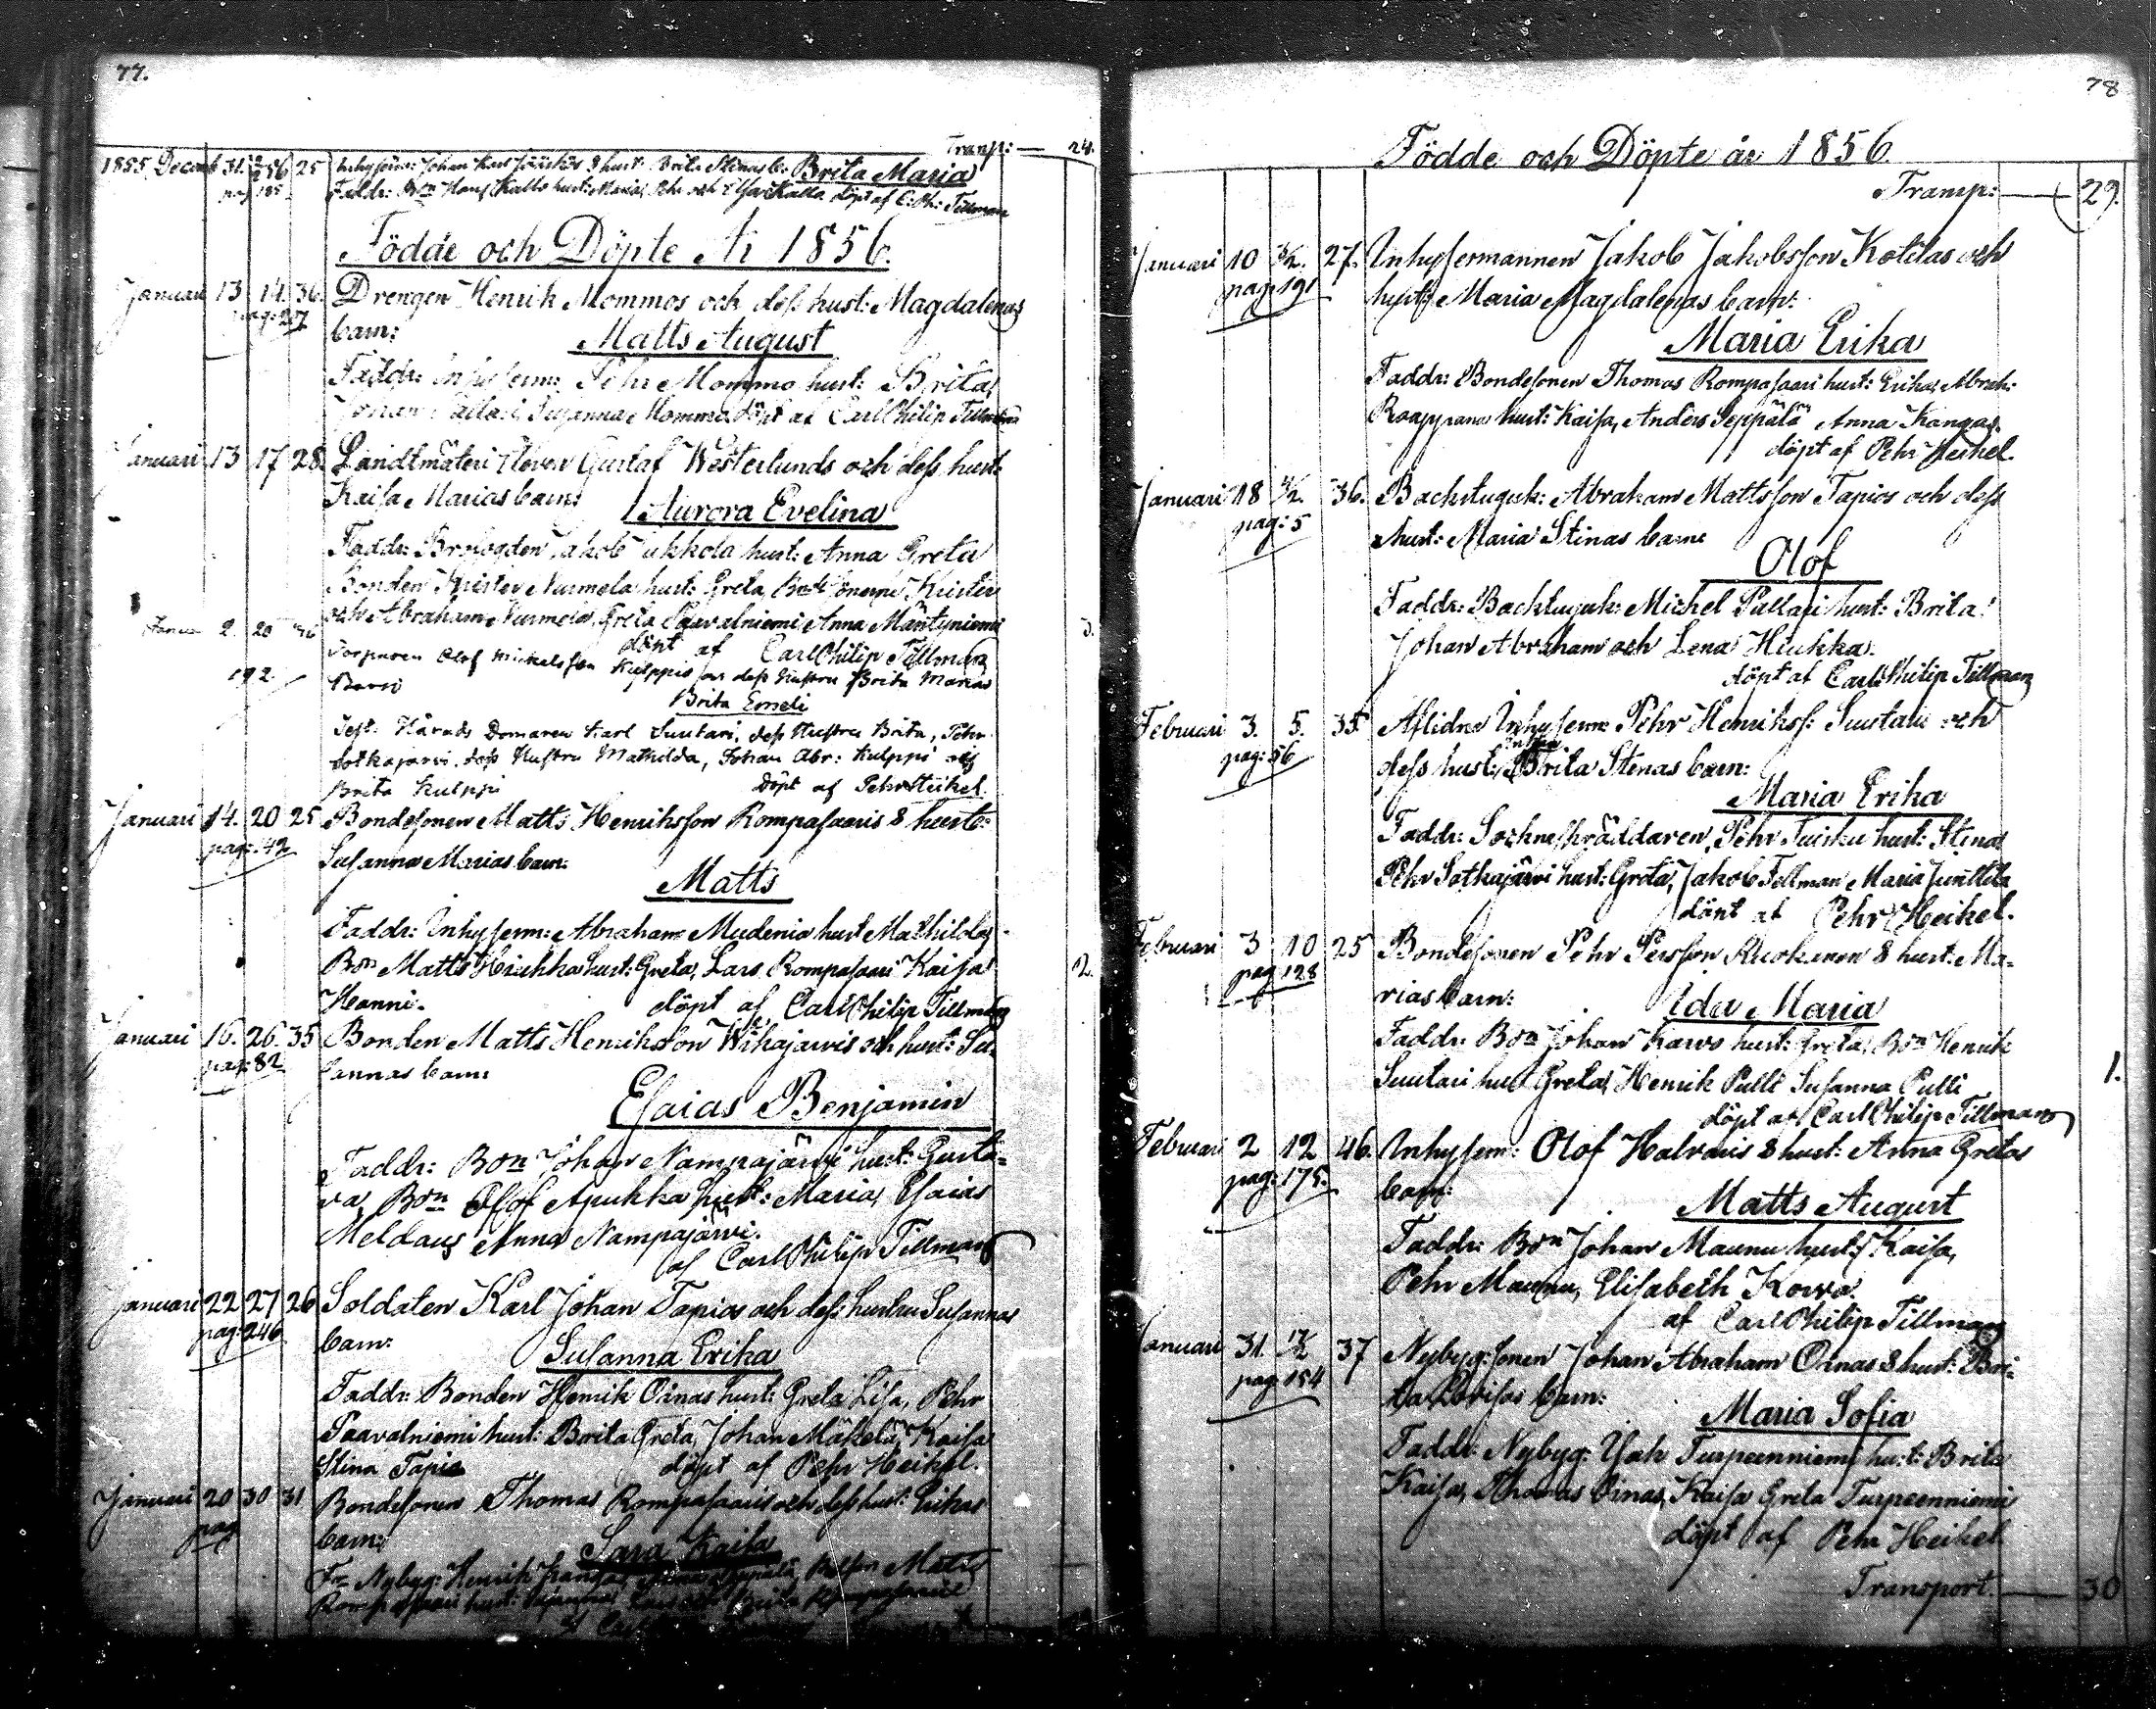 77.
Transp: — 24.
1855 Decemb 31. 25 Brita Maria
pag 185 Faddr: Bon Hans Kallo hust: Maria, Pehr och Kallo döpt af C: Ph: Tillman
Födde och Döpte År 1856.
Januari 13 14 36 Drengen Henrik Mommos och dess hust: Magdalenas
pag: 27 barn: Matts August
Faddr: Inhysesm: Pehr Mommo hust: Brita,
Johan Susanna Mommo döpt af Carl Philip Tillman
Januari 13 17 28 Landtmäteri Eleven Gustaf Westerlunds och dess hust:
Kaisa Marias barn: Aurora Evelina
Faddr: Brofogden Jakob Jukkola hust: Anna Greta
Bonden Krister Nurmela hust: Greta, Bondsönerne Krister
och Abraham Nurmela, Greta Paavalniemi Anna Mäntyniemi
döpt af Carl Philip Tillman
2. 20 Torparen Olof Mickelsson Kulppis och dess Hustru Brita Marias
192. Barn
Brita Emeli
Test: Härads Domaren Karl Suutari, dess Hustru Brita, Pehr
Sotkajärvi, dess Hustru Mathilda, Johan Abr: Kulppi och
Brita Kulppi döpt af Pehr Heikel.
Januari 14. 20 25 Bondesonen Matts Henriksson Rompasaaris & hust:
pag: 42 Susanna Marias barn:
Matts
Faddr: Inhysesm: Abraham Mudenia hust Mathilda,
Bon Matts Hiukka hust: Greta, Lars Rompasaari Kaisa 2.
Hanni. döpt af Carl Philip Tillman
Januari 16. 26. 35 Bonden Matts Henriksson Wikajärvis och hust: Su-
pag: 82 sannas barn:
Esaias Benjamin
Faddr: Bon Johan Nampajärvi hust: Gusta-
va, Bon Olof Apukka hust: Maria, Esaias
Meldaus Anna Nampajärvi.
af Carl Philip Tillman
Januari 22 27 26 Soldaten Karl Johan Tapios och dess hustru Susannas
pag: 246 barn: Susanna Erika
Faddr: Bonden Henrik Oinas hust: Greta Lisa, Pehr
Paavalniemi hust: Brita Greta, Johan Mäkelä, Kaisa
Stina Tapio döpt af Pehr Heikel.
Januari 20 30 31 Bondesonen Thomas Rompasaaris och dess hust: Erikas
pag barn: Sara Kaisa
Fr Nybyg: Henrik Kangas Matts
78
Födde och Döpte år 1856
Transp: — 29.
Januari 10 3/2. 27. Inhysesmannen Jakob Jakobsson Kotilas och
pag: 191 hust: Maria Magdalenas barn:
Maria Erika
Faddr: Bondesonen Thomas Rompasaari hust: Erika, Abrah:
hust: Kaisa, Anders Seppälä Anna Kangas.
döpt af Pehr Heikel.
Januari 18 4/2. 36. Backstuguk: Abraham Mattsson Tapios och dess
pag: 5 hust: Maria Stinas barn:
Olof
Faddr: Backstuguk: Michel Pallari hust: Brita
Johan Abraham och Lena Hiukka.
döpt af Carl Philip Tillman
Februari 3. 5. 35 Aflidne Inhysesm: Pehr Henrikss: Suutari och
pag: 56 dess hust: Enkan Brita Stinas barn:
Maria Erika
Faddr: Sockneskräddaren Pehr Tuisku hust: Stina
Pehr Sotkajärvi hust: Greta, Jakob Fellman Maria Junttila
döpt af Pehr Heikel.
Februari 3 10 25 Bondesonen Pehr Persson Ruokanen & hust: Ma-
pag 128 rias barn: Ida Maria
Faddr: Bon Johan Karvo hust: Greta, Bon Henrik
Suutari hust Greta, Henrik Pulli Susanna Pulli 1.
döpt af Carl Philip Tillman
Februari 2 12 46. Inhysesm: Olof Halvaris & hust: Anna Gretas
pag: 175. barn:
Matts August
Faddr: Bon Johan Maunu hust: Kaisa,
Pehr Maunu, Elisabeth Korva.
af Carl Philip Tillman
Januari 31. 12/2 37 Nybyg: sonen Johan Abraham Oinas & hust: Bri-
pag 154 ta Lovisas barn:
Maria Sofia
Faddr: Nybyg: Isak Turpeenniemi hust: Brita
Kaisa, Thomas Oinas, Kaisa Greta Turpeenniemi
döpt af Pehr Heikel
Transport. — 30